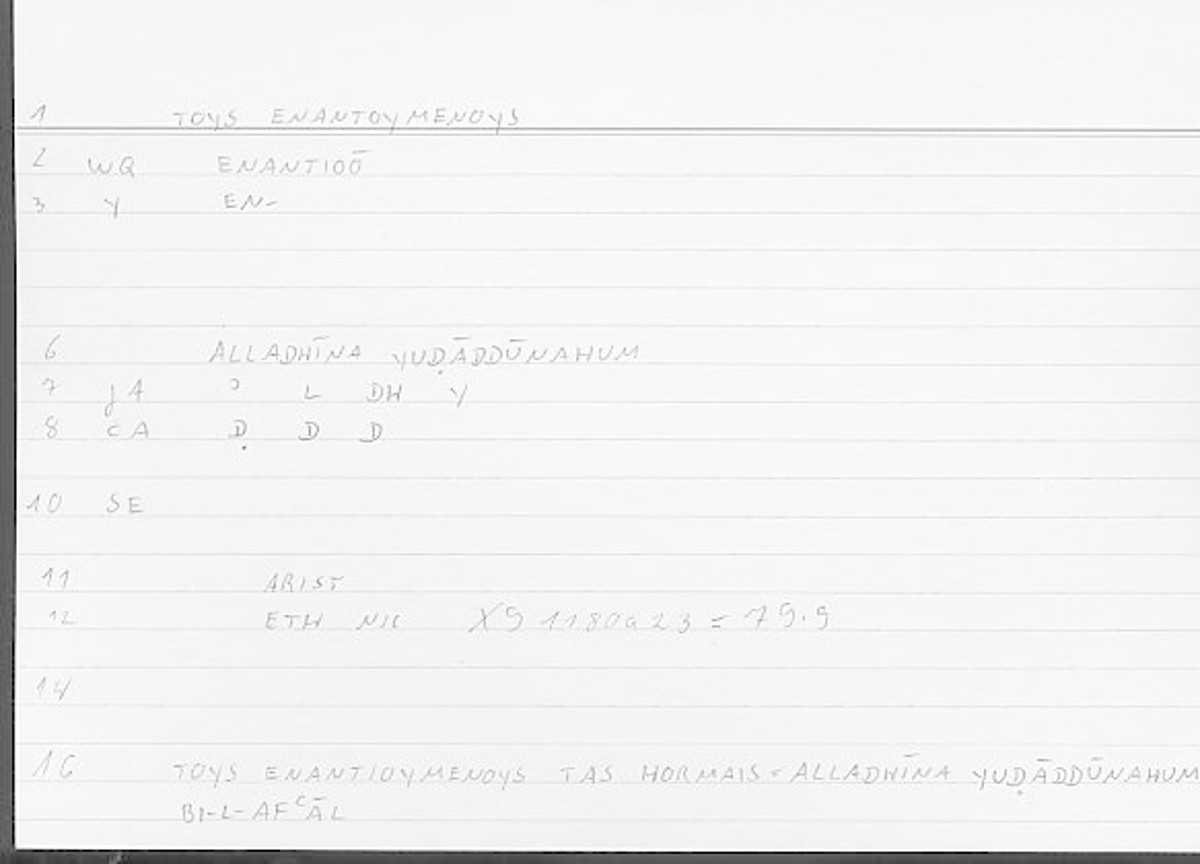 1 TOYS ENANTOYMENOYS
2 WQ ENANTIOŌ
3 Y EN-
6 ALLADHĪNA YUḌĀDDŪNAHUM
7 JA ʾ L DH Y
8 CA Ḍ D D
10 SE
11 ARIST
12 ETH NIC X9 1180a23 = 79.9
14
16 TOYS ENANTIOYMENOYS TAS HORMAIS = ALLADHĪNA YUḌĀDDŪNAHUM
BI-L-AFʿĀL